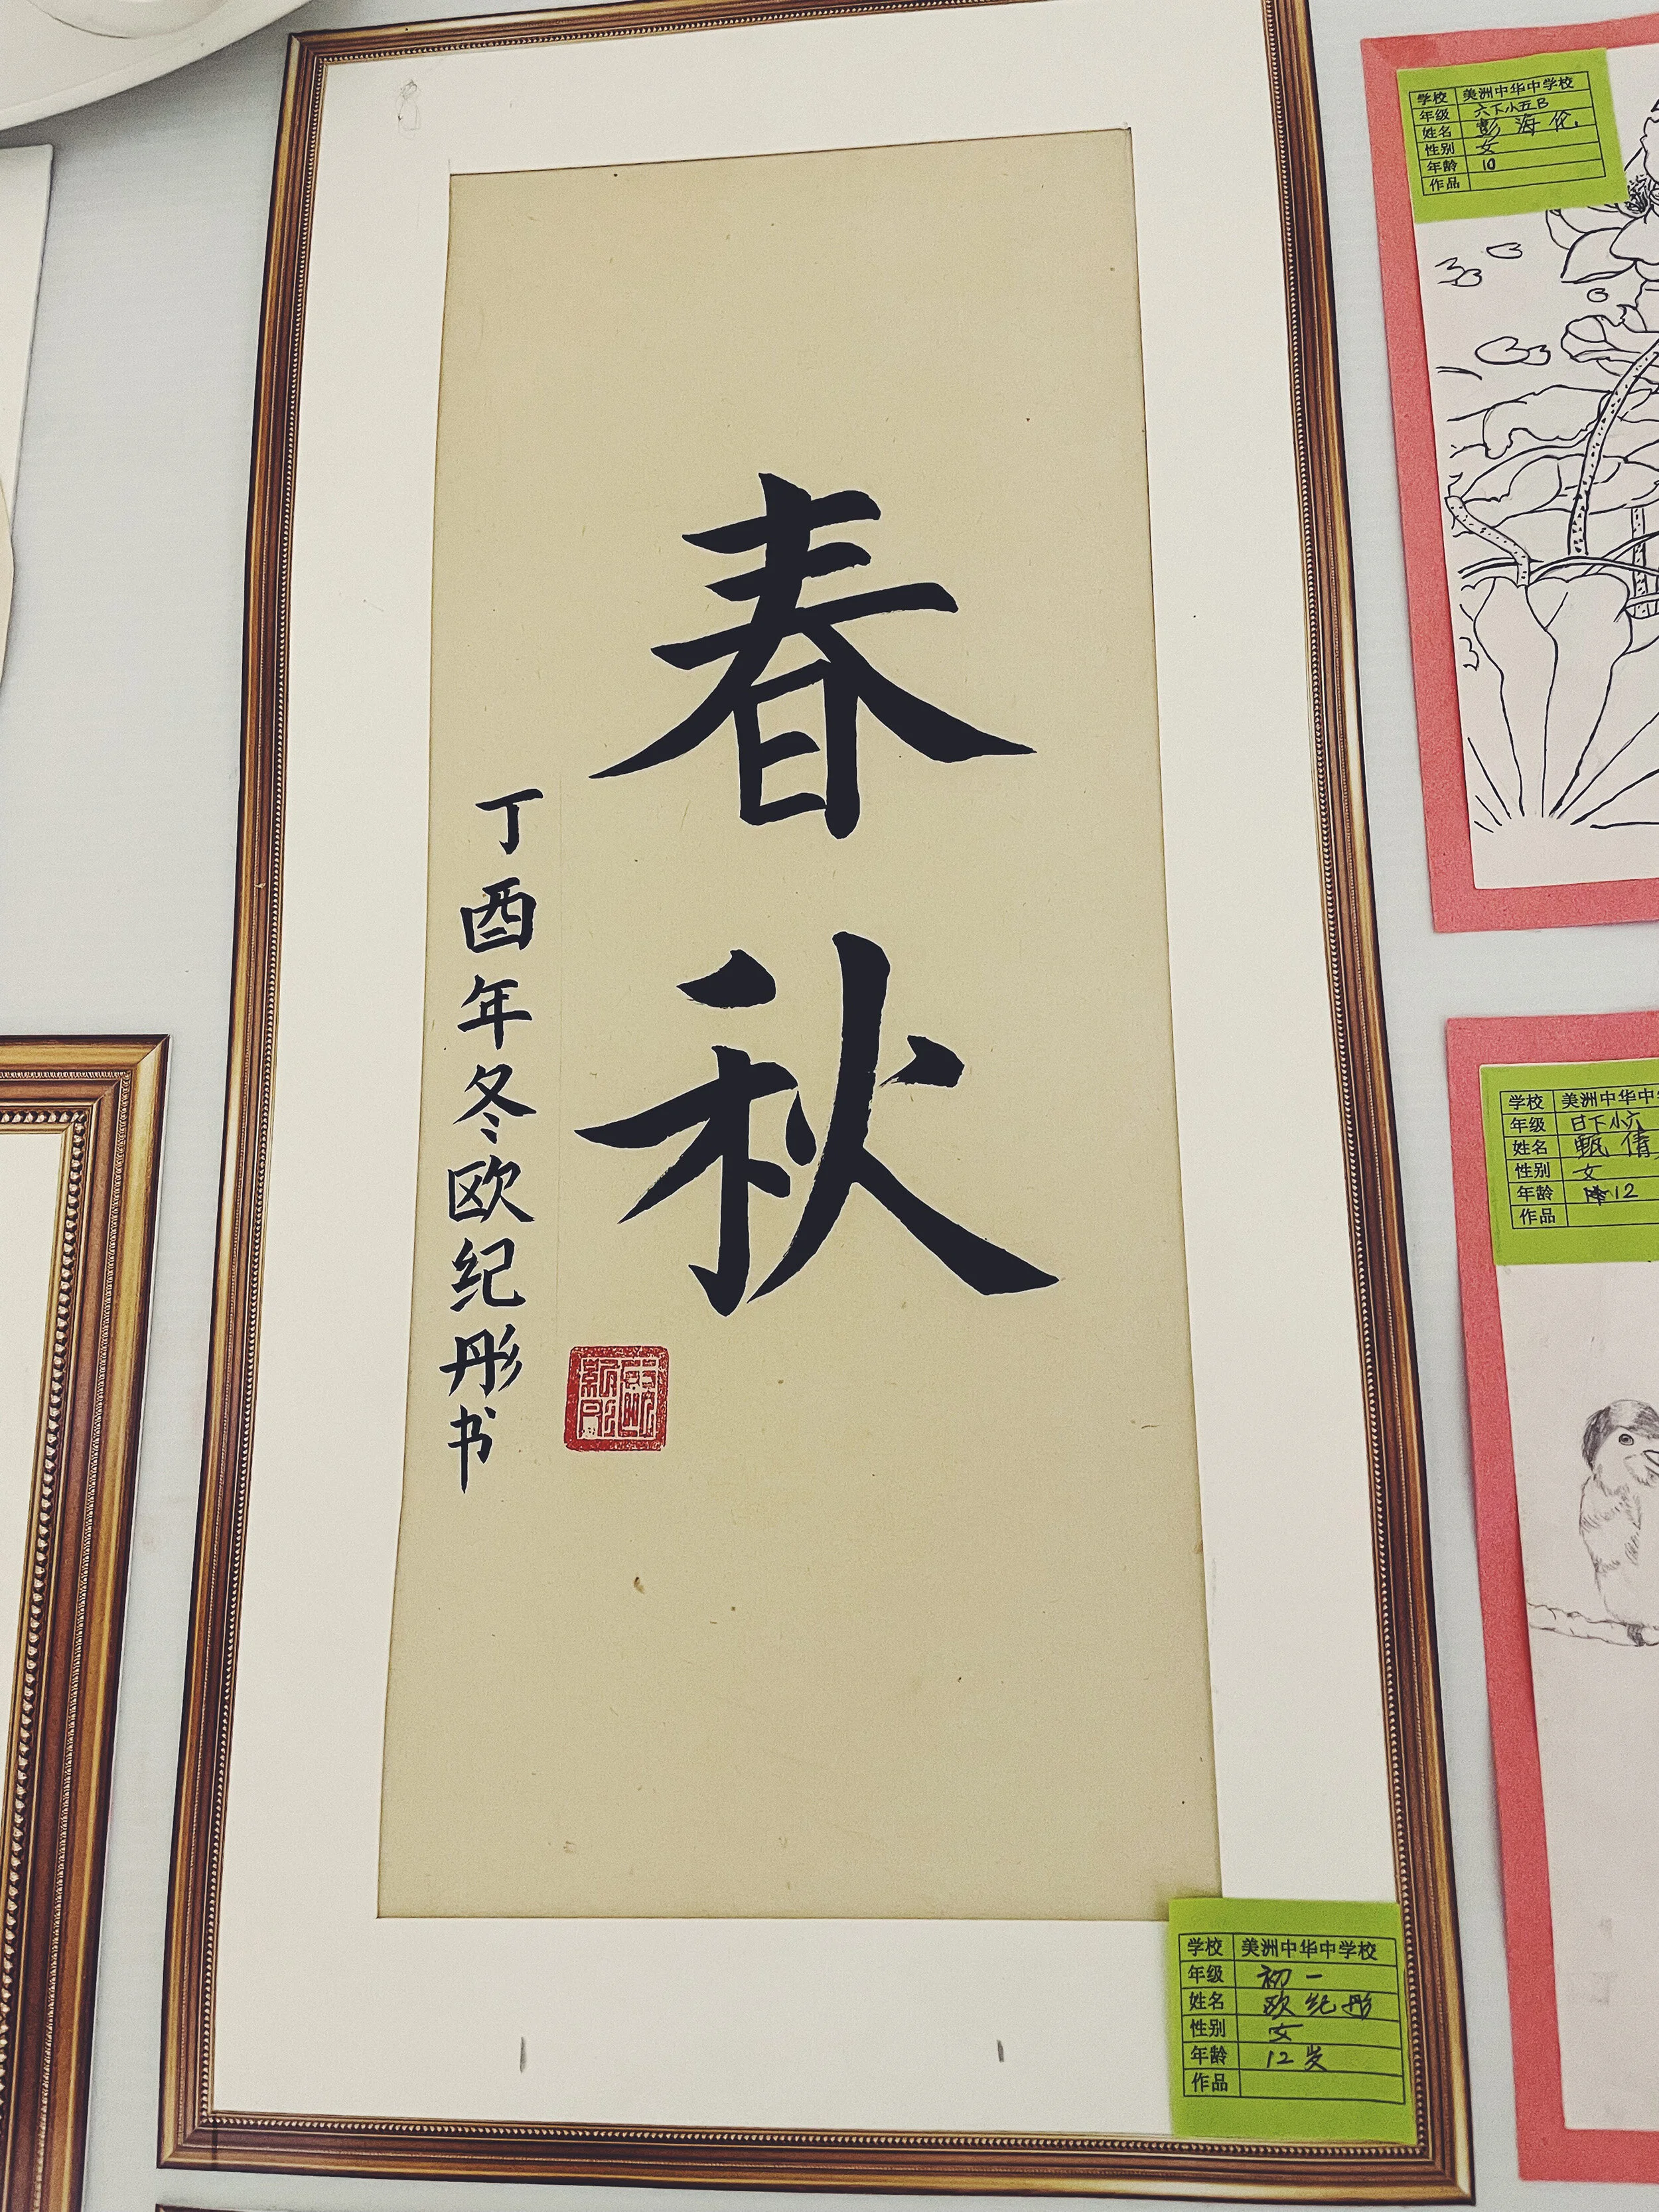 春秋
丁酉年冬欧纪彤书
学校 美洲中华中学校
年级 初一
姓名 欧纪彤
性别 女
年龄 12岁
作品
学校 美洲中华中学校
年级 六下小五B
姓名 彭海伦
性别 女
年龄 10
作品
学校 美洲中华中
年级 日下小六
姓名 甄倩
性别 女
年龄 12
作品